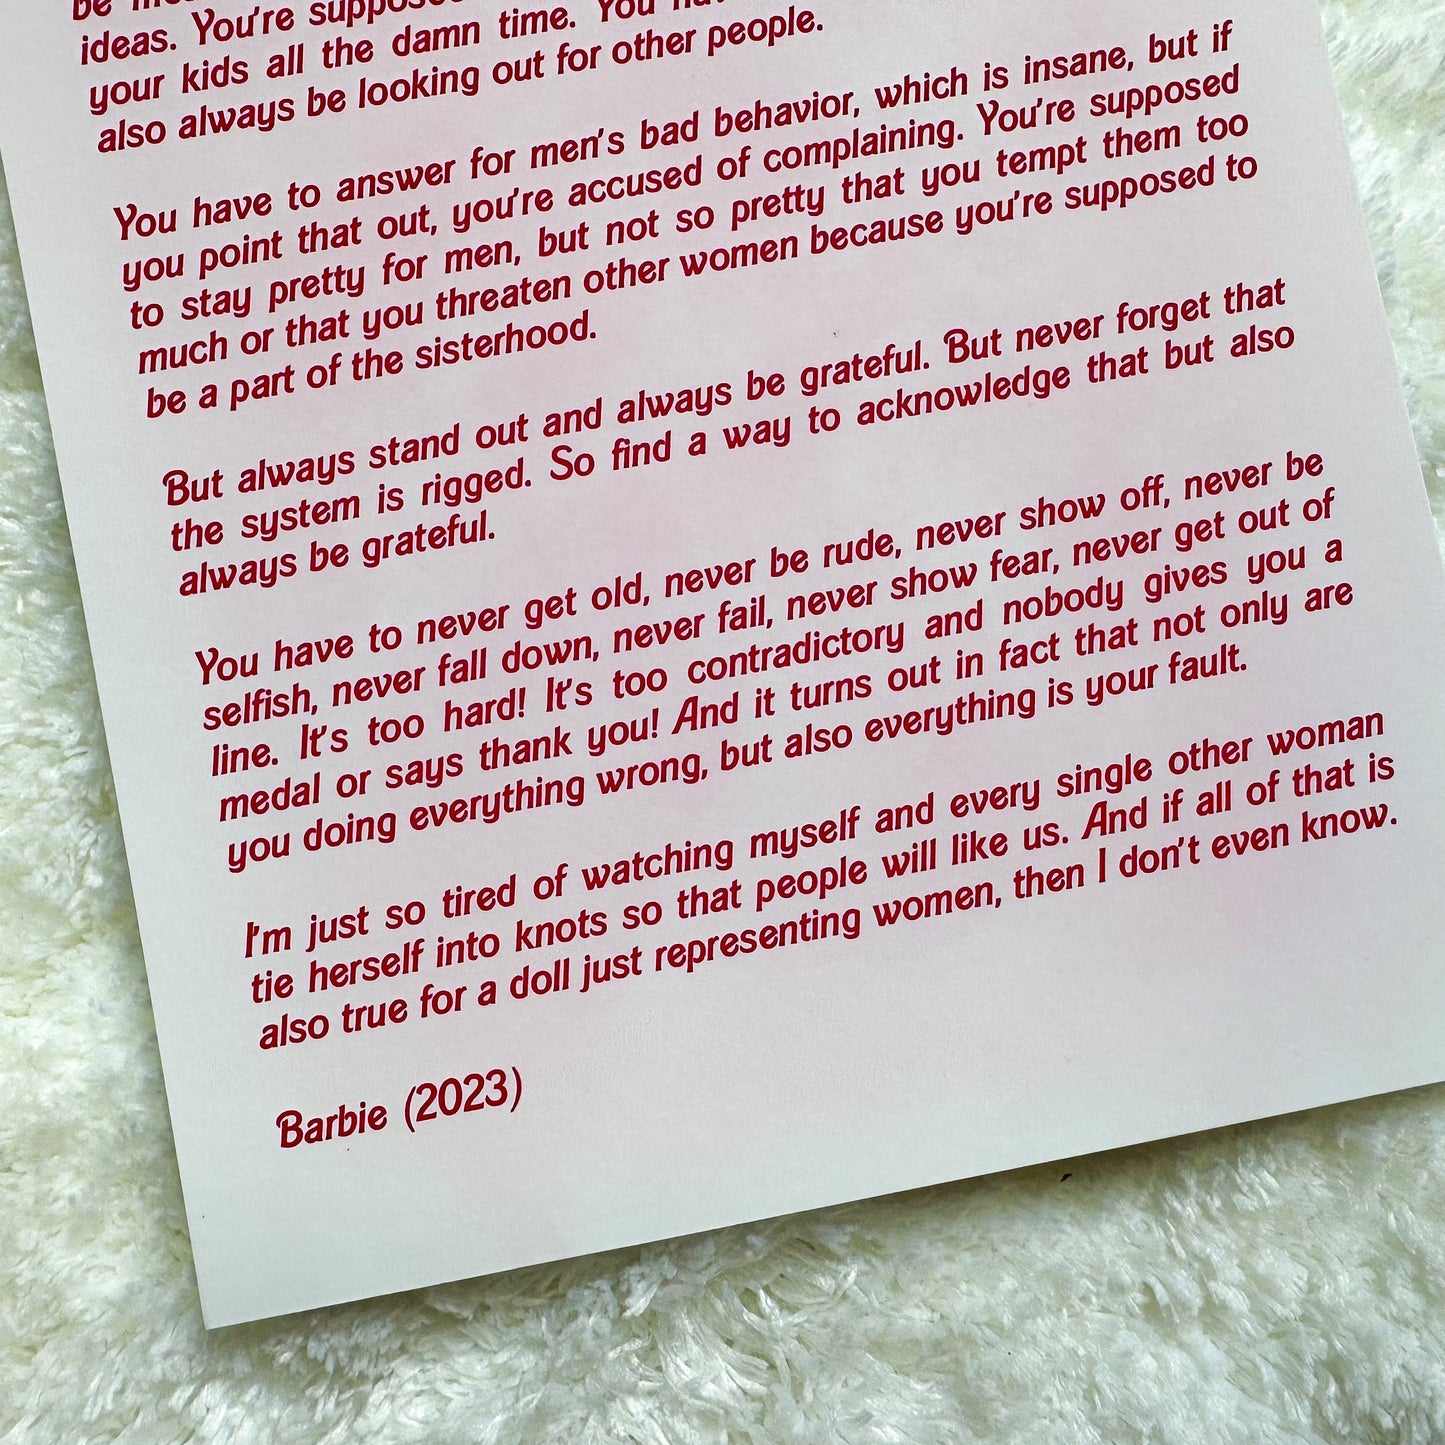 ideas. You're
your kids all the damn time. You
also always be looking out for other people.
You have to answer for men's bad behavior, which is insane, but if
you point that out, you're accused of complaining. You're supposed
to stay pretty for men, but not so pretty that you tempt them too
much or that you threaten other women because you're supposed to
be a part of the sisterhood.
But always stand out and always be grateful. But never forget that
the system is rigged. So find a way to acknowledge that but also
always be grateful.
You have to never get old, never be rude, never show off, never be
selfish, never fall down, never fail, never show fear, never get out of
line. It's too hard! It's too contradictory and nobody gives you a
medal or says thank you! And it turns out in fact that not only are
you doing everything wrong, but also everything is your fault.
I'm just so tired of watching myself and every single other woman
tie herself into knots so that people will like us. And if all of that is
also true for a doll just representing women, then I don't even know.
Barbie (2023)